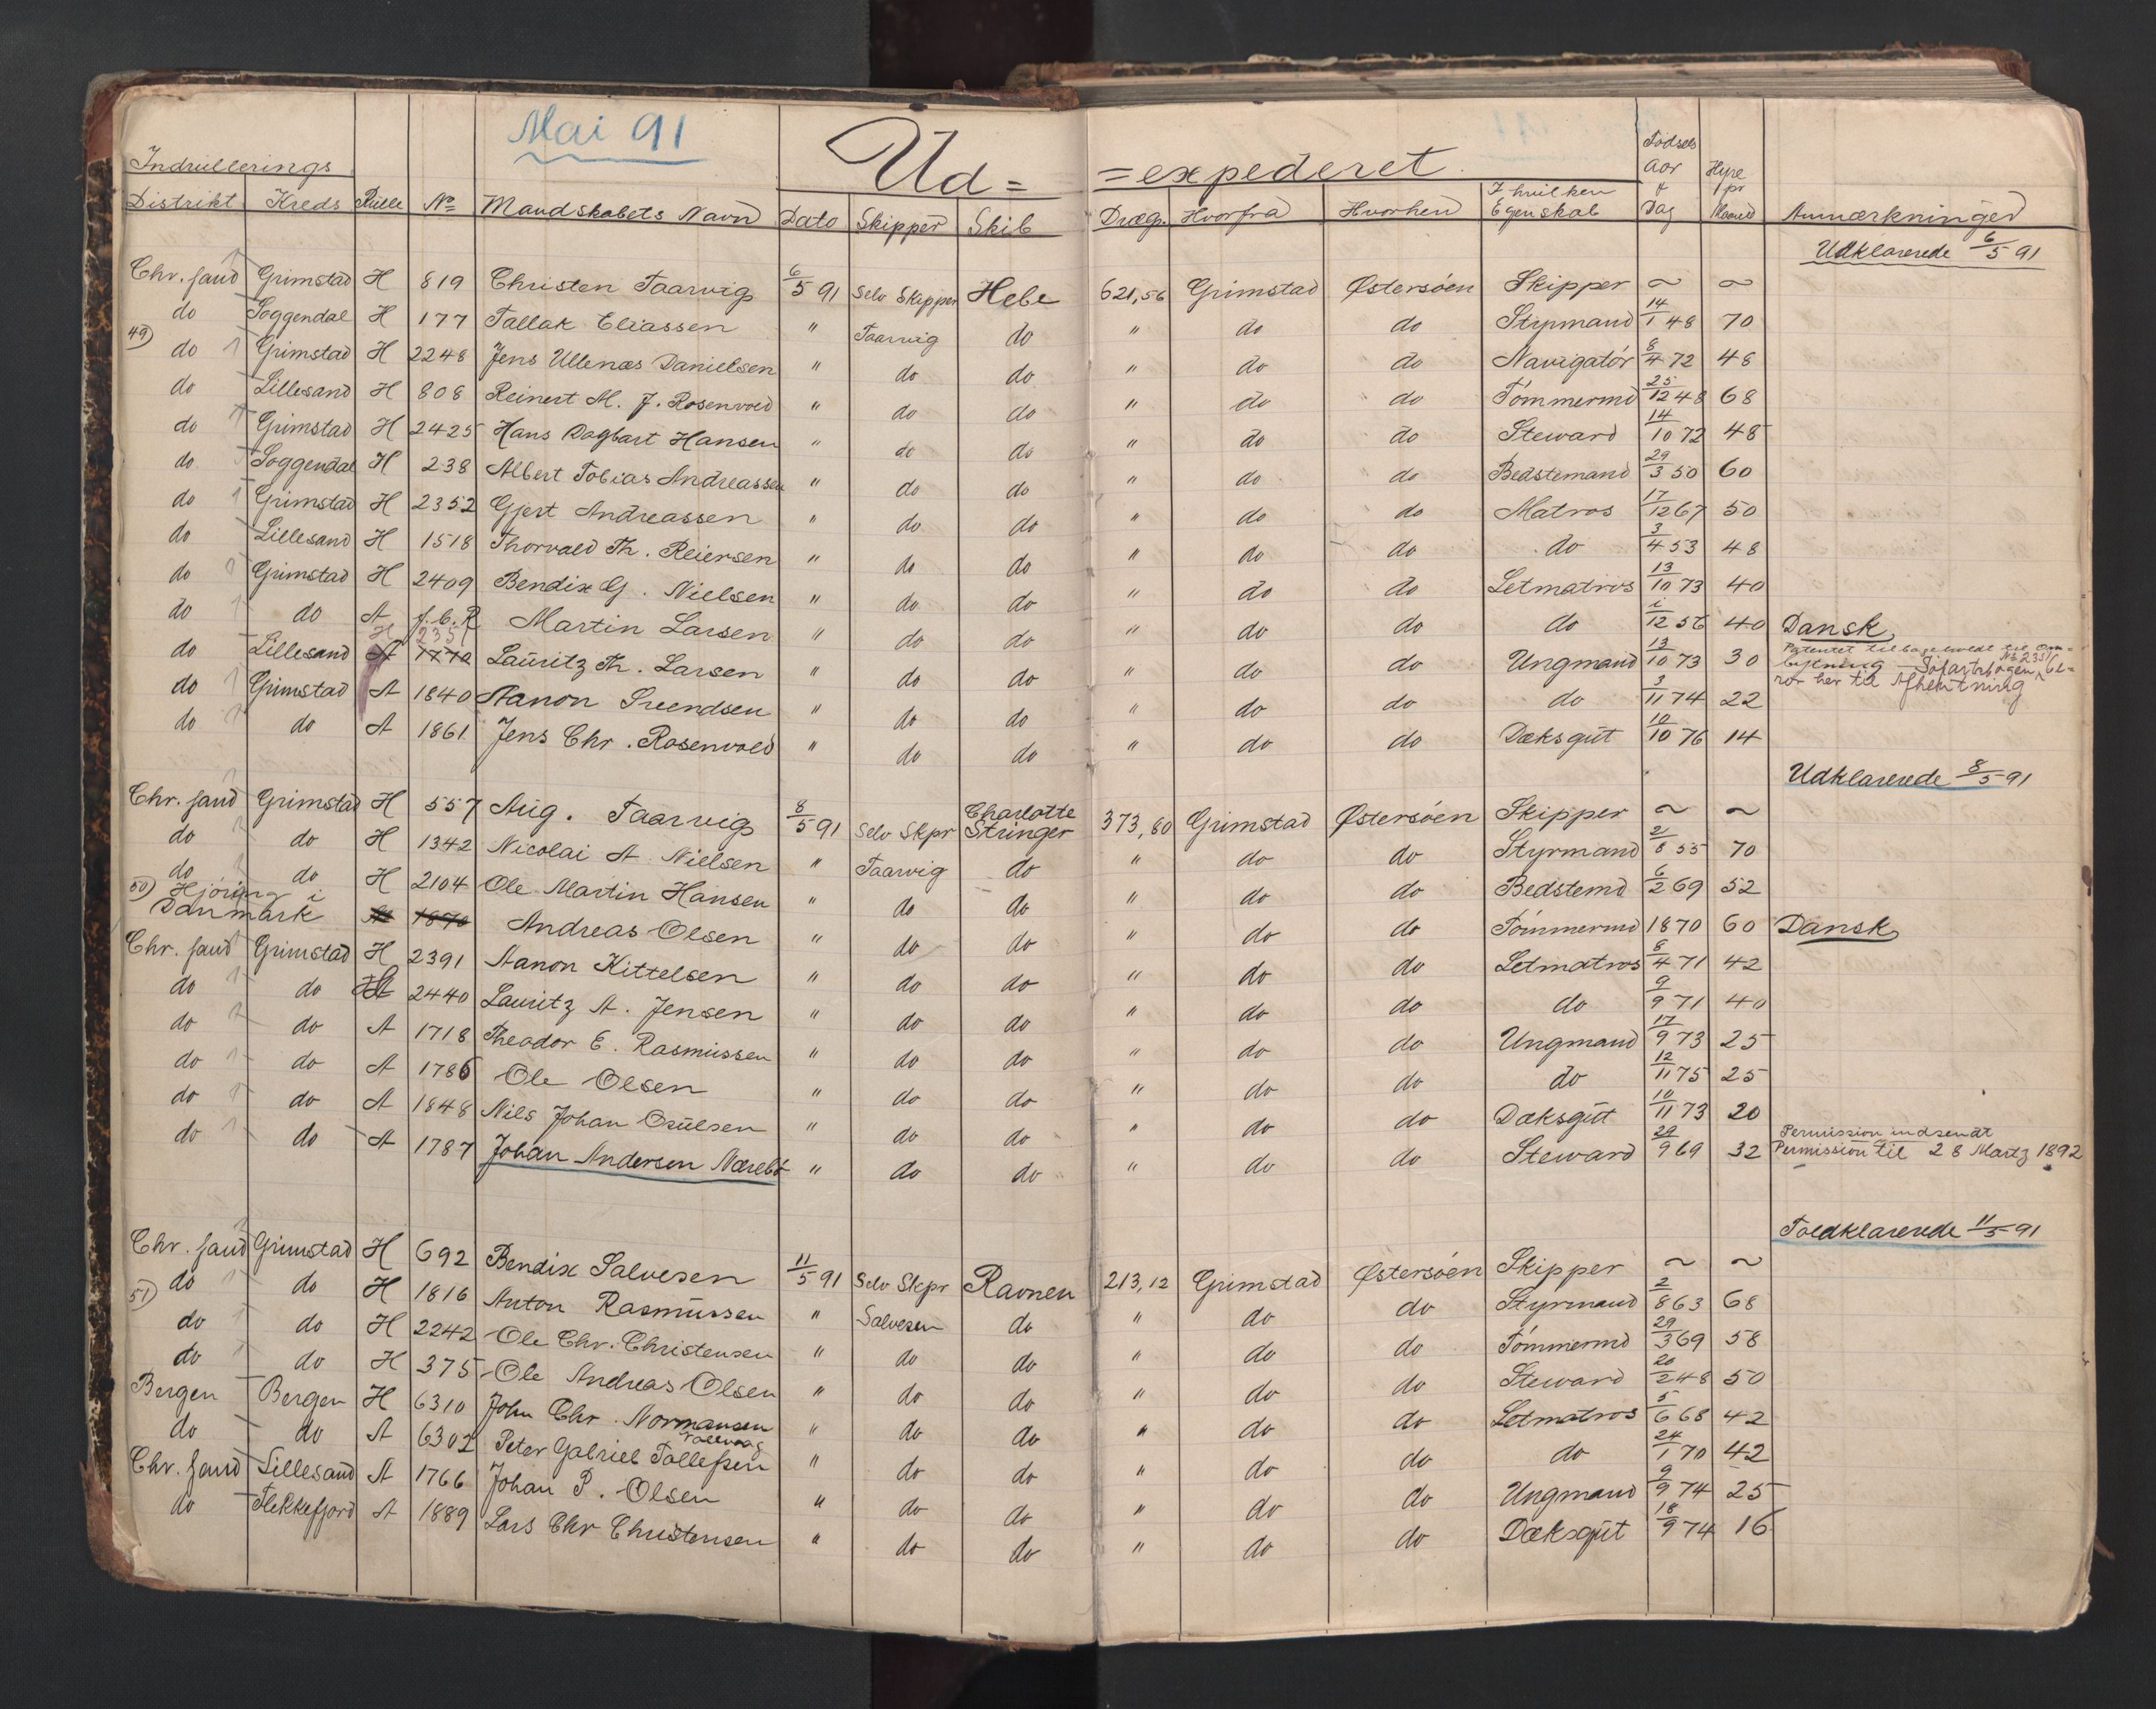 Mai 91
Ud= =expederet
Indrullerings
Distrikt Kreds Rulle No Mandskabets Navn Dato Skipper Skib Drægt. Hvorfra Hvorhen I hvilken Egenskab Fødsels Aar & Dag Hyre pr Maaned Anmærkninger
Udklarerede 6/5 91
Chr. sand Grimstad H 819 Christen Taarvig 6/5 91 Selv Skipper Hebe 621,56 Grimstad Østersøen Skipper ~ ~
do Soggendal H 177 Tallak Eliassen " Taarvig do " do do Styrmand 14/1 48 70
49) do Grimstad H 2248 Jens Ullenæs Danielsen " do do " do do Navigatör 8/4 72 48
do Lillesand H 808 Reinert M. J. Rosenvold " do do " do do Tömmermd 25/12 48 68
do Grimstad H 2425 Hans Dagbart Hansen " do do " do do Steward 14/10 72 48
do Soggendal H 238 Albert Tobias Andreassen " do do " do do Bedstemand 29/3 50 60
do Grimstad H 2352 Gjert Andreassen " do do " do do Matros 17/12 67 50
do Lillesand H 1518 Thorvald Th. Reiersen " do do " do do do 3/4 53 48
do Grimstad H 2409 Bendix G. Nielsen " do do " do do Letmatros 13/10 73 40
do do A f.C.R Martin Larsen " do do " do do do 1/12 56 40 Dansk
H 2351
do Lillesand A 1770 Lauritz Th. Larsen " do do " do do Ungmand 13/10 73 30 Patentet tilbagesendt til Om=
bytning Söfartsbogen No 2351 be=
ror her til Afhentning
do Grimstad A 1840 Aanon Svendsen " do do " do do do 3/11 74 22
do do A 1861 Jens Chr. Rosenvold " do do " do do Dæksgut 10/10 76 14
Udklarerede 8/5 91
Chr. sand Grimstad H 557 Aug. Taarvig 8/5 91 Selv Skpr Charlotte Stringer 373,80 Grimstad Østersøen Skipper ~ ~
do do H 1342 Nicolai A. Nielsen " Taarvig do " do do Styrmand 2/8 55 70
do do H 2104 Ole Martin Hansen " do do " do do Bedstemd 6/2 69 52
50) Hjöring i Danmark A 1870 Andreas Olsen " do do " do do Tömmermd 1870 60 Dansk
Chr. sand Grimstad H 2391 Aanon Kittelsen " do do " do do Letmatros 8/4 71 42
do do H 2440 Lauritz A. Jensen " do do " do do do 9/9 71 40
do do A 1718 Theodor E. Rasmussen " do do " do do Ungmand 17/9 73 25
do do A 1786 Ole Olsen " do do " do do do 12/11 75 25
do do A 1848 Nils Johan Osulsen " do do " do do Dæksgut 10/11 73 20
do do A 1787 Johan Andersen Nærebö " do do " do do Steward 29/9 69 32 Permission indsendt
Permission til 28 Martz 1892
Toldklarerede 11/5 91
Chr. sand Grimstad H 692 Bendix Salvesen 11/5 91 Selv Skpr Ravnen 213,12 Grimstad Østersøen Skipper ~ ~
51) do do H 1816 Anton Rasmussen " Salvesen do " do do Styrmand 2/8 63 68
do do H 2242 Ole Chr. Christensen " do do " do do Tömmermd 29/3 69 58
do do H 375 Ole Andreas Olsen " do do " do do Steward 20/2 48 50
Bergen Bergen H 6310 John Chr. Normansen " do do " do do Letmatros 5/6 68 42
do do A 6302 Peter Gabriel Tollefsen " do do " do do do 24/1 70 42
Chr. sand Lillesand A 1766 Johan P. Olsen " do do " do do Ungmand 9/9 74 25
do Flekkefjord A 1889 Lars Chr Christensen " do do " do do Dæksgut 18/9 74 16